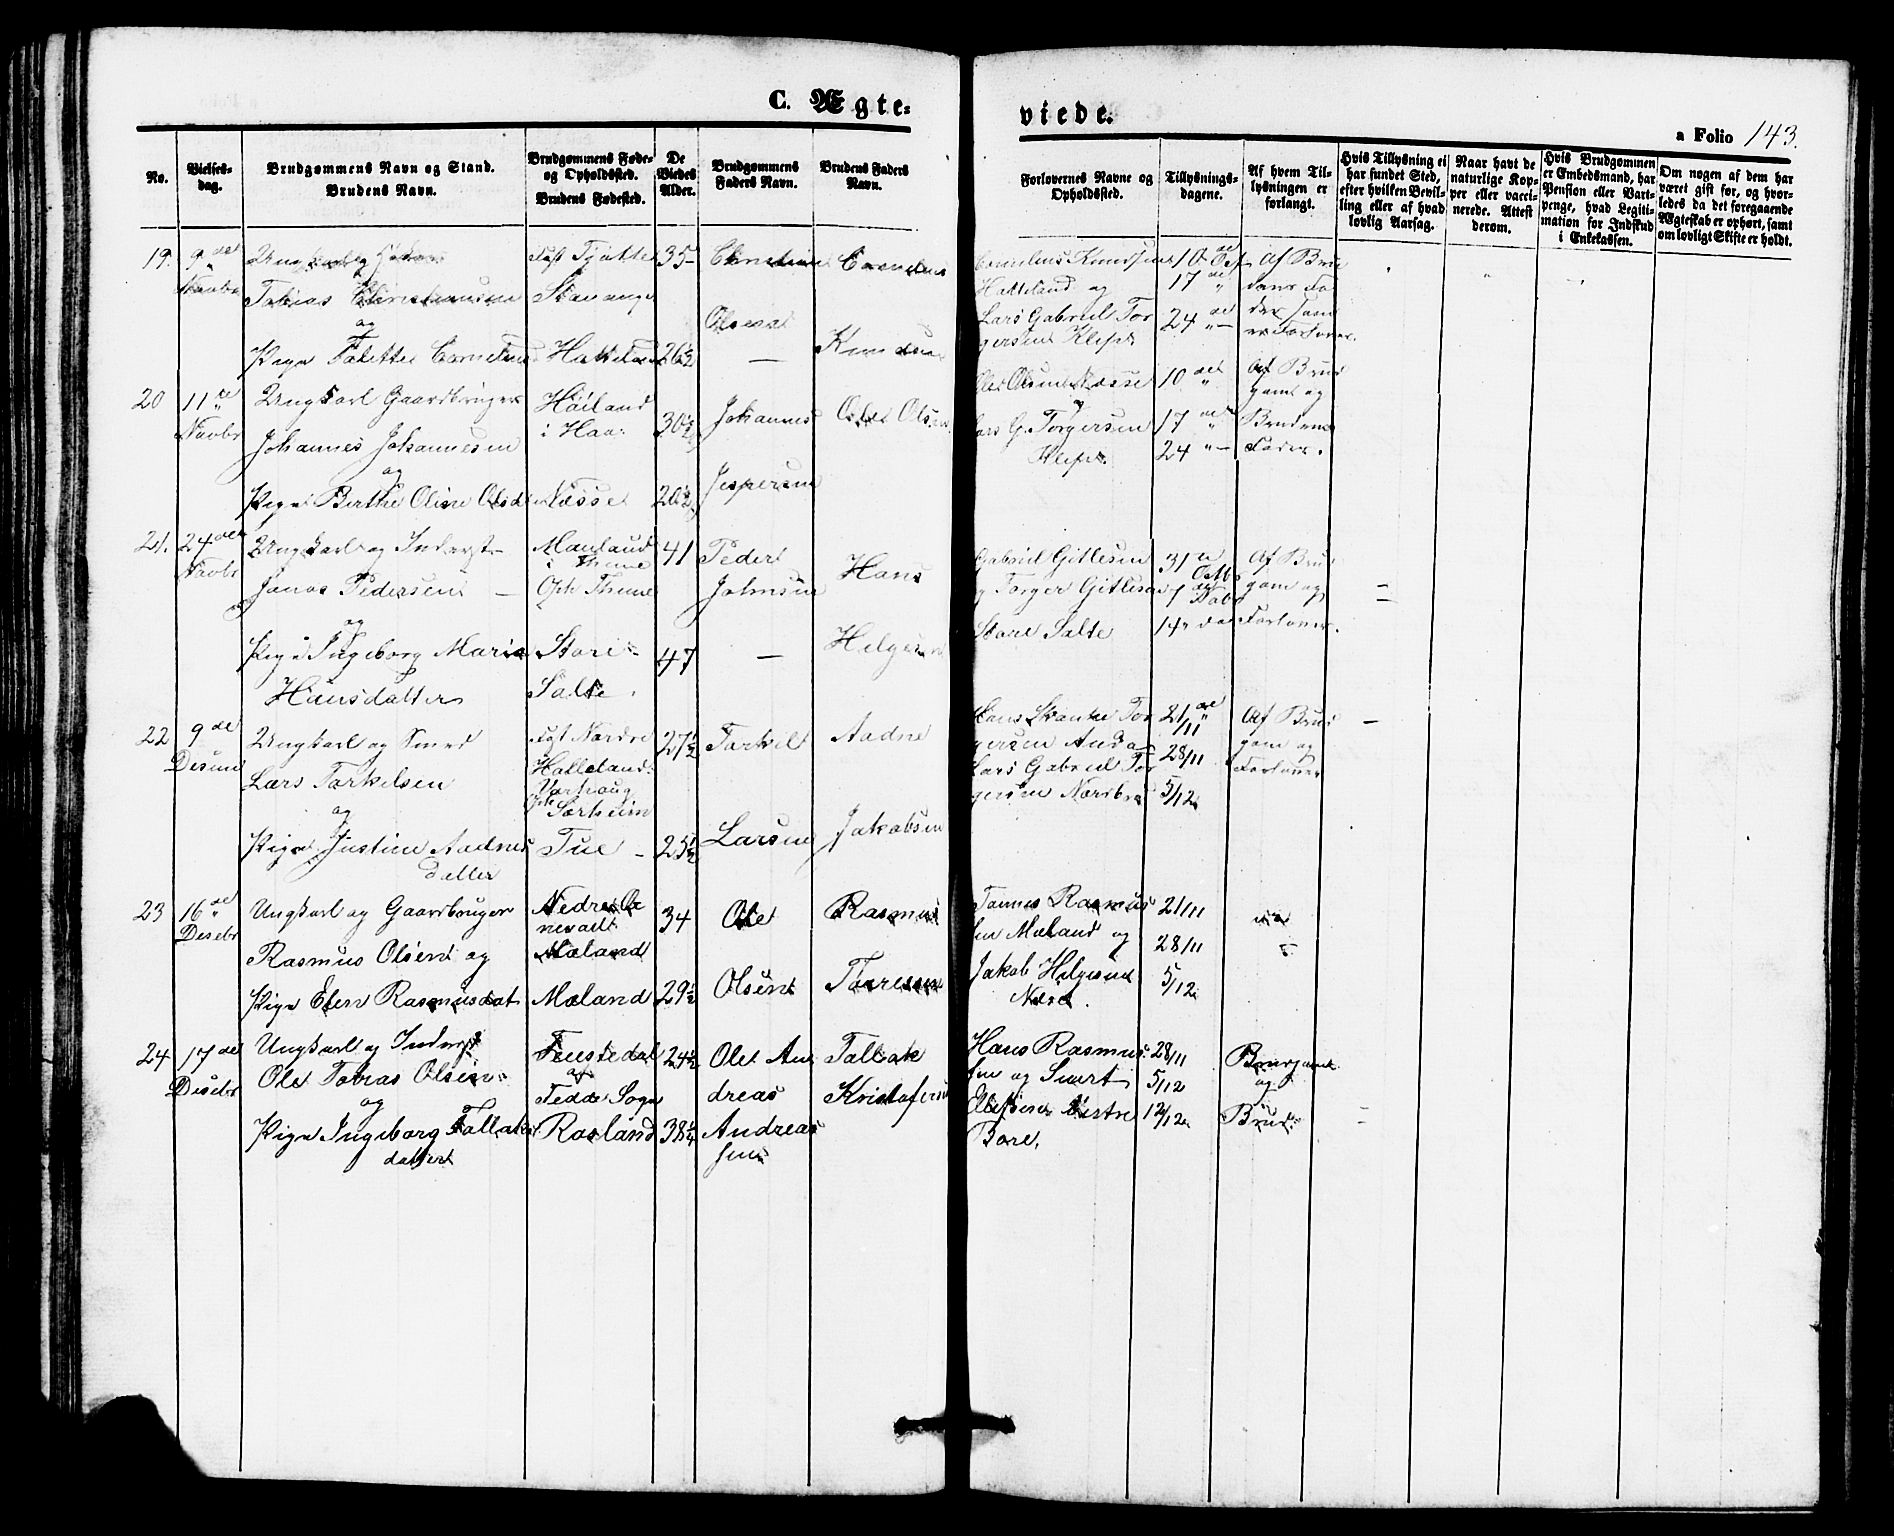 C. Ægte=
viede.
a Folio 143.
No.
Vielses-
dag.
Brudgommens Navn og Stand.
Brudens Navn.
Brudgommens Føde-
og Opholdssted.
Brudens Fødested.
De
Viedes
Alder.
Brudgommens
Faders Navn.
Brudens Faders
Navn.
Forlovernes Navne og
Opholdssted.
Tillysnings-
dagene.
Af hvem Til-
lysningen er
forlangt.
Hvis Tillysning ei
har fundet Sted,
efter hvilken Bevil-
ling eller af hvad
lovlig Aarsag.
Naar havt de
naturlige Kop-
per eller vacci-
nerede. Attest
derom.
Hvis Brudgommen
er Embedsmand, har
Pension eller Vart-
penge, hvad Legiti-
mation for Indskud
i Enkekassen.
Om nogen af dem har
været gift før, og hvor-
ledes da det foregaaende
Ægteskab er ophørt, samt
om lovligt Skifte er holdt.
19. 9de Novbr
Ungkarl og
Tobias Christiansen
og
Pige Cornelius
Stavanger
35
26½
Olsen
—
Cornelius
Knudsen
Cornelius Knudsen
Hatteland og
Lars Gabriel Tor
gersen Klepe
10de Oct
17de "
24de "
Af Bru
dens Fa
der sam
20 11te Novbr
Ungkarl Gaardbruger
Johannes Johannesen
og
Pige Berthe Oline Olsd
Høiland
i Haa
Næsse
30½
20½
Johannes
Jespersen
Olsen
Ole Olsen Næsse
Lars G. Torgersen
Klepe.
10de "
17de "
24 "
Af Brud
gom og
Brudens
Fader.
21. 24de Novbr
Ungkarl og Inderst
Jonas Pedersen —
og
Pige Ingeborg Maria
Hansdatter
i Thime
Oph Thime
Store
Salte
41
47
Peder
Johnsen
—
Hans
Helgesen
Gabriel Gitlesen
og Torger Gitlesen
Store Salte
31te Octbr
7de Novbr
14 "
Af Brud
gom og
Forlover.
=
22 9de
Ungkarl og Smed
Lars Torkelsen
og
Pige Justine Aadnes
datter
født Nordre
Hatteland
Varhoug
Oph Sørheim
Tue —
27½
25½
Torkel
Larsen
Aadne
Jakobsen
Hans Tor
gersen Anda
Lars Gabriel Tor
gersen Nærbø
21/11
28/11
5/12
Af Brud
gom og
Forlover
—
23 16de Desebr
Ungkarl og Gaardbruger
Rasmus Olsen og
Pige Elen Rasmusdat
Nedre
Mæland
Mæland
34
29½
Ole
Olsen
Rasmus
Thoresen
Tønnes Rasmus
sen Mæland og
Jakob Helgesen
Nærø.
21/11
28/11
5/12
24 17de Desebr
Ungkarl og Inderst
Ole Tobias Olsen
og
Pige Ingeborg Tollaks
datter
Fenstedal
af
Fedde Sogn
Rosland
24½
38¼
Ole An
dreas
Andreas
sen
Tollak
Kristofersen
Hans Rasmus
sen og Sivert
Vestre
Bore.
28/11
5/12
12/12
Brudgom
og
Brud
=